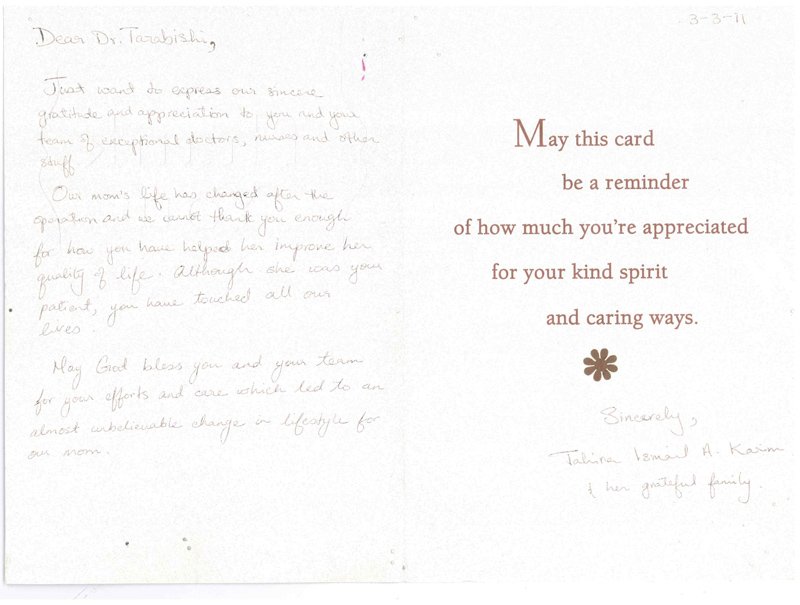 Dear Dr. Tarabishi,
Just want to express our sincere
gratitude and appreciation to you and your
team of exceptional doctors, nurses and other
stuff
Our mom's life has changed after the
operation and we cannot thank you enough
for how you have helped her improve her
quality of life. Although she was your
patient, you have touched all our
lives.
May God bless you and your team
for your efforts and care which led to an
almost unbelievable change in lifestyle for
our mom.
3-3-11
May this card
be a reminder
of how much you're appreciated
for your kind spirit
and caring ways.
Sincerely,
Tahira Ismail A. Karim
& her grateful family.